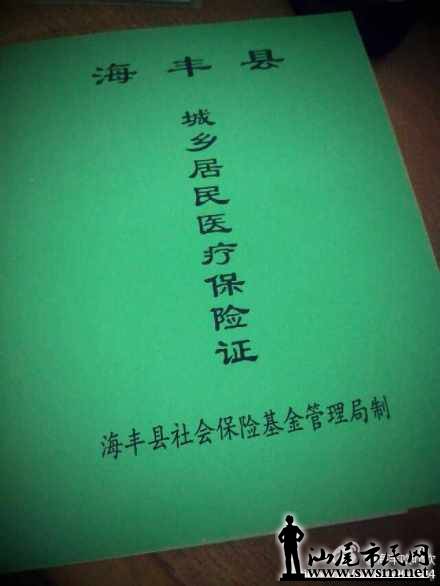 海丰县
城乡居民医疗保险证
海丰县社会保险基金管理局制
汕尾市民网
www.swsm.net